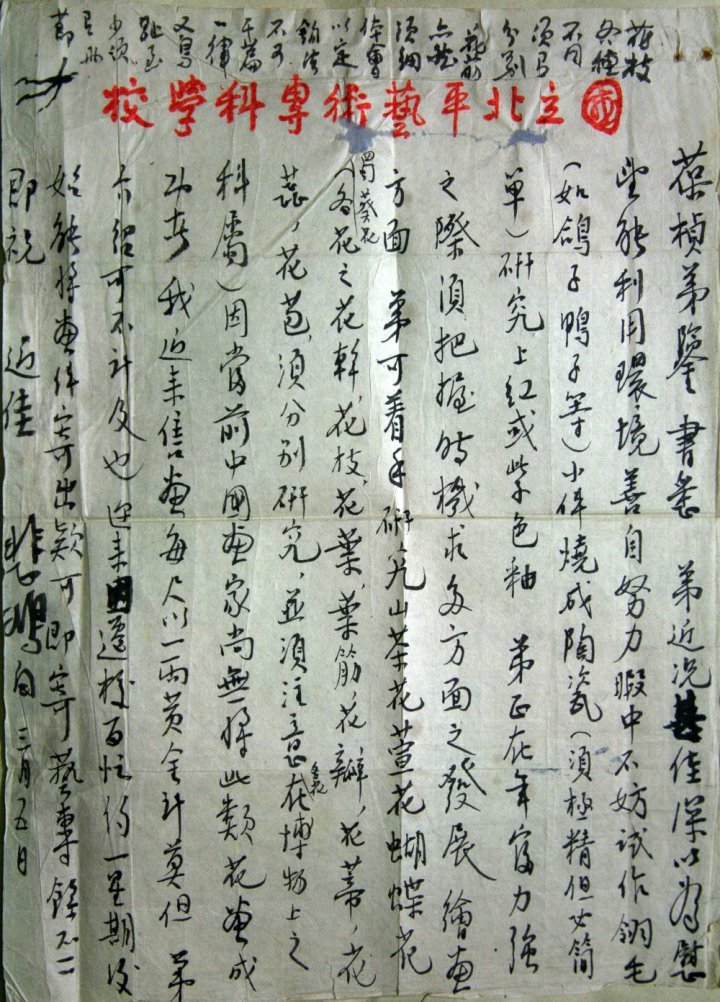 國立北平藝術專科學校
葆楨弟鑒 書悉 弟近況甚佳深以為慰
望能利用環境 善自努力 暇中不妨試作翎毛
(如鴿子鴨子等)小件燒成陶瓷(須極精但必簡
單)研究上紅或紫色釉 弟正在年富力強
之際須把握時機求多方面之發展 繪畫
方面 弟可着手研究山茶花萱花蝴蝶花
蜀葵花
(各花之花幹,花枝,花葉,葉筋,花瓣,花蒂,花
蕊,花苞,須分別研究,並須注意在博物上之
科屬)因當前中國畫家尚無將此類花畫成
功者 我近來信畫每尺以一兩黃金計算但 弟
介紹可不計及也 近來因遷校百忙約一星期後
始能將畫件寄出款可即寄藝專 餘不一
即祝 近佳 悲鴻白 三月五日
花枝
各種
不同
須為
分別
花萼
亦然
須細
體會
以定
鈎法
不可
千篇
一律
又鳥
趾至
少須